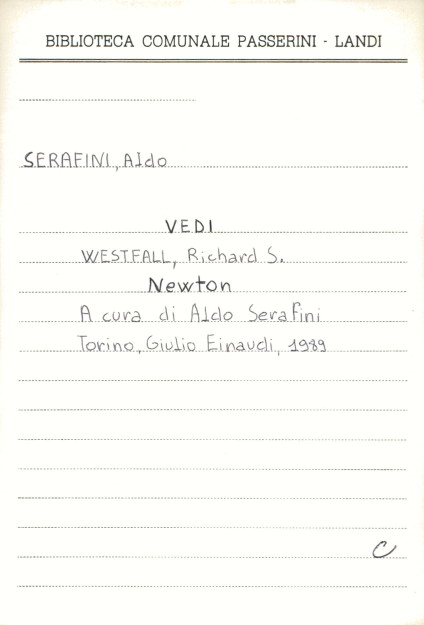 BIBLIOTECA COMUNALE PASSERINI - LANDI
SERAFINI, Aldo
VEDI
WESTFALL, Richard S.
Newton
A cura di Aldo Serafini
Torino, Giulio Einaudi, 1989
C